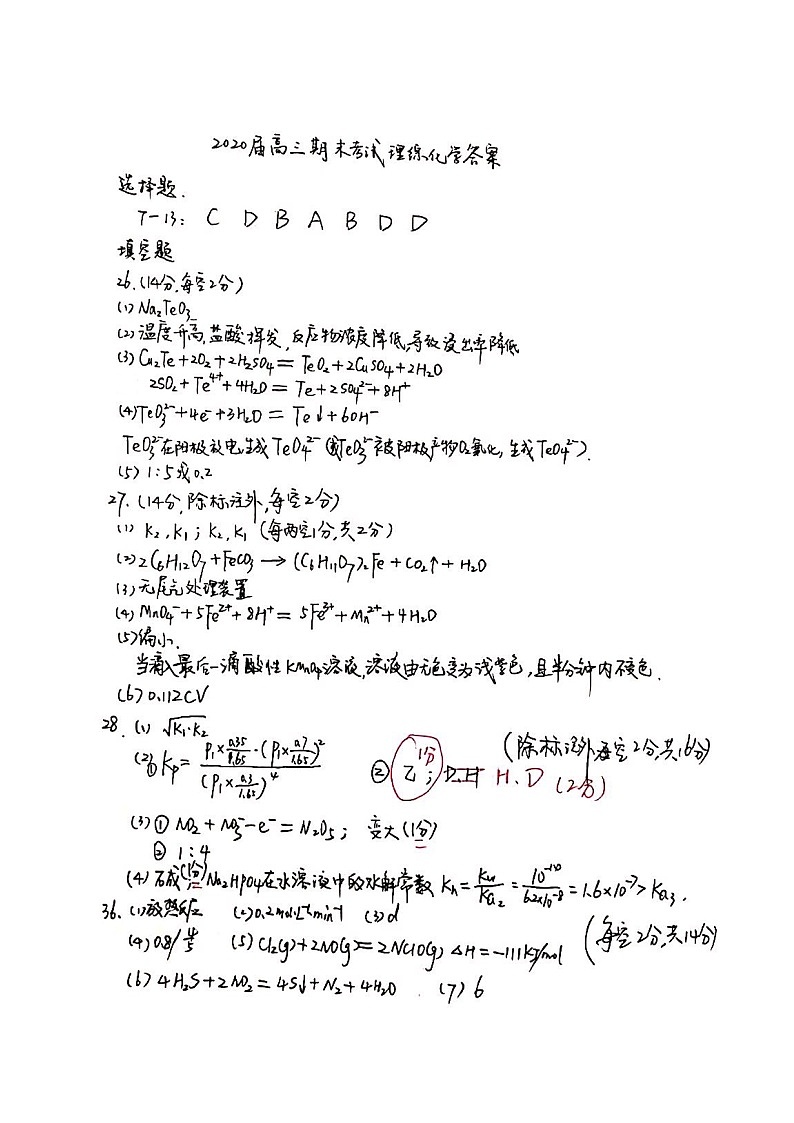 2020届高三期末考试理综化学答案
选择题.
7-13: C D B A B D D
填空题
26.(14分,每空2分)
(1) Na₂TeO₃
(2) 温度升高,盐酸挥发,反应物浓度降低,导致浸出率降低
(3) Cu₂Te+2O₂+2H₂SO₄=TeO₂+2CuSO₄+2H₂O
2SO₂+Te⁴⁺+4H₂O=Te+2SO₄²⁻+8H⁺
(4) TeO₃²⁻+4e⁻+3H₂O=Te↓+6OH⁻
TeO₃²⁻在阳极放电生成TeO₄²⁻(或TeO₃²⁻被阳极产物O₂氧化,生成TeO₄²⁻).
(5) 1:5或0.2
27.(14分,除标注外,每空2分)
(1) K₂,K₁;K₂,K₁(每两空1分,共2分)
(2) 2C₆H₁₂O₇+FeCO₃→(C₆H₁₁O₇)₂Fe+CO₂↑+H₂O
(3) 无尾气处理装置
(4) MnO₄⁻+5Fe²⁺+8H⁺=5Fe³⁺+Mn²⁺+4H₂O
(5) 偏小.
当滴入最后一滴酸性KMnO₄溶液,溶液由无色变为浅紫色,且半分钟内不变色.
(6) 0.112CV
28.(1) √K₁·K₂ (除标注外每空2分,共16分)
(2)① Kp=(P₁×0.35/1.65·(P₁×0.7/1.65)²)/(P₁×0.3/1.65)⁴ ② 乙1分; H、D(2分)
(3)① NO₂+NO₃⁻-e⁻=N₂O₅;变大(1分)
② 1:4
(4) 石咸(1分);Na₂HPO₄在水溶液中的水解常数Kh=Kw/Ka₂=10⁻¹⁴/6.2×10⁻⁸=1.6×10⁻⁷>Ka₃.
36.(1)放热反应 (2)0.2mol·L⁻¹·min⁻¹ (3)d (每空2分,共14分)
(4)0.8/4/5 (5)Cl₂(g)+2NO(g)=2NClO(g) ΔH=-111KJ/mol
(6)4H₂S+2NO₂=4S↓+N₂+4H₂O (7)6